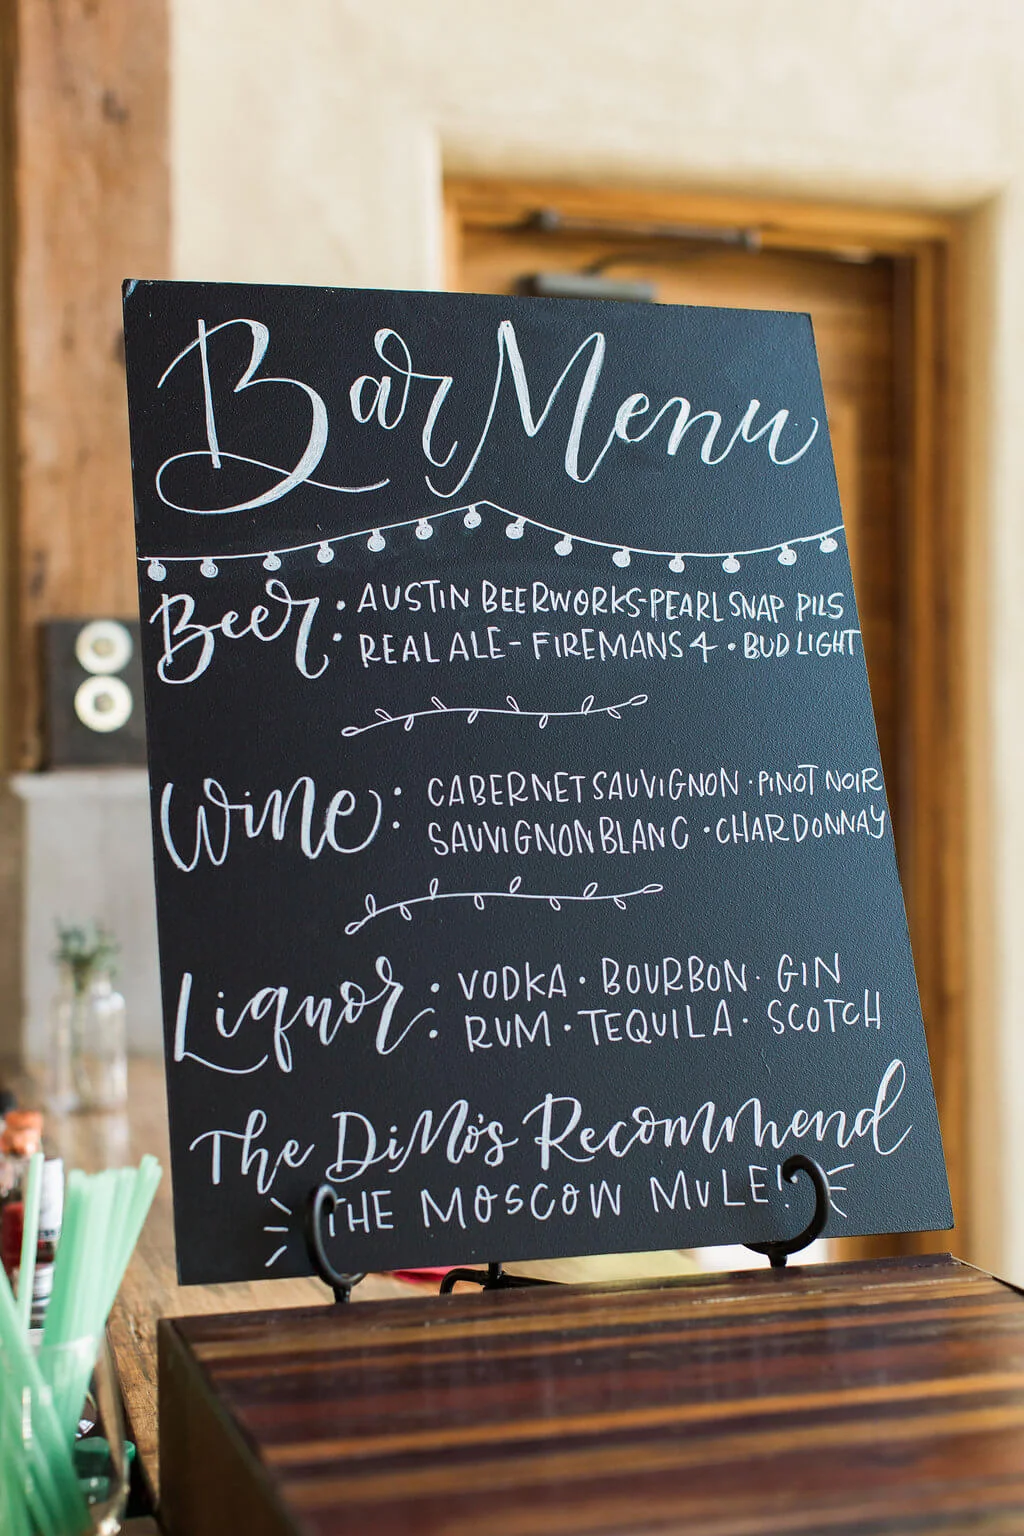 Bar Menu
Beer: AUSTIN BEERWORKS-PEARL SNAP PILS
REAL ALE - FIREMANS 4 • BUD LIGHT
Wine: CABERNET SAUVIGNON • PINOT NOIR
SAUVIGNON BLANC • CHARDONNAY
Liquor: VODKA • BOURBON • GIN
RUM • TEQUILA • SCOTCH
The DiMo's Recommend
THE MOSCOW MULE!